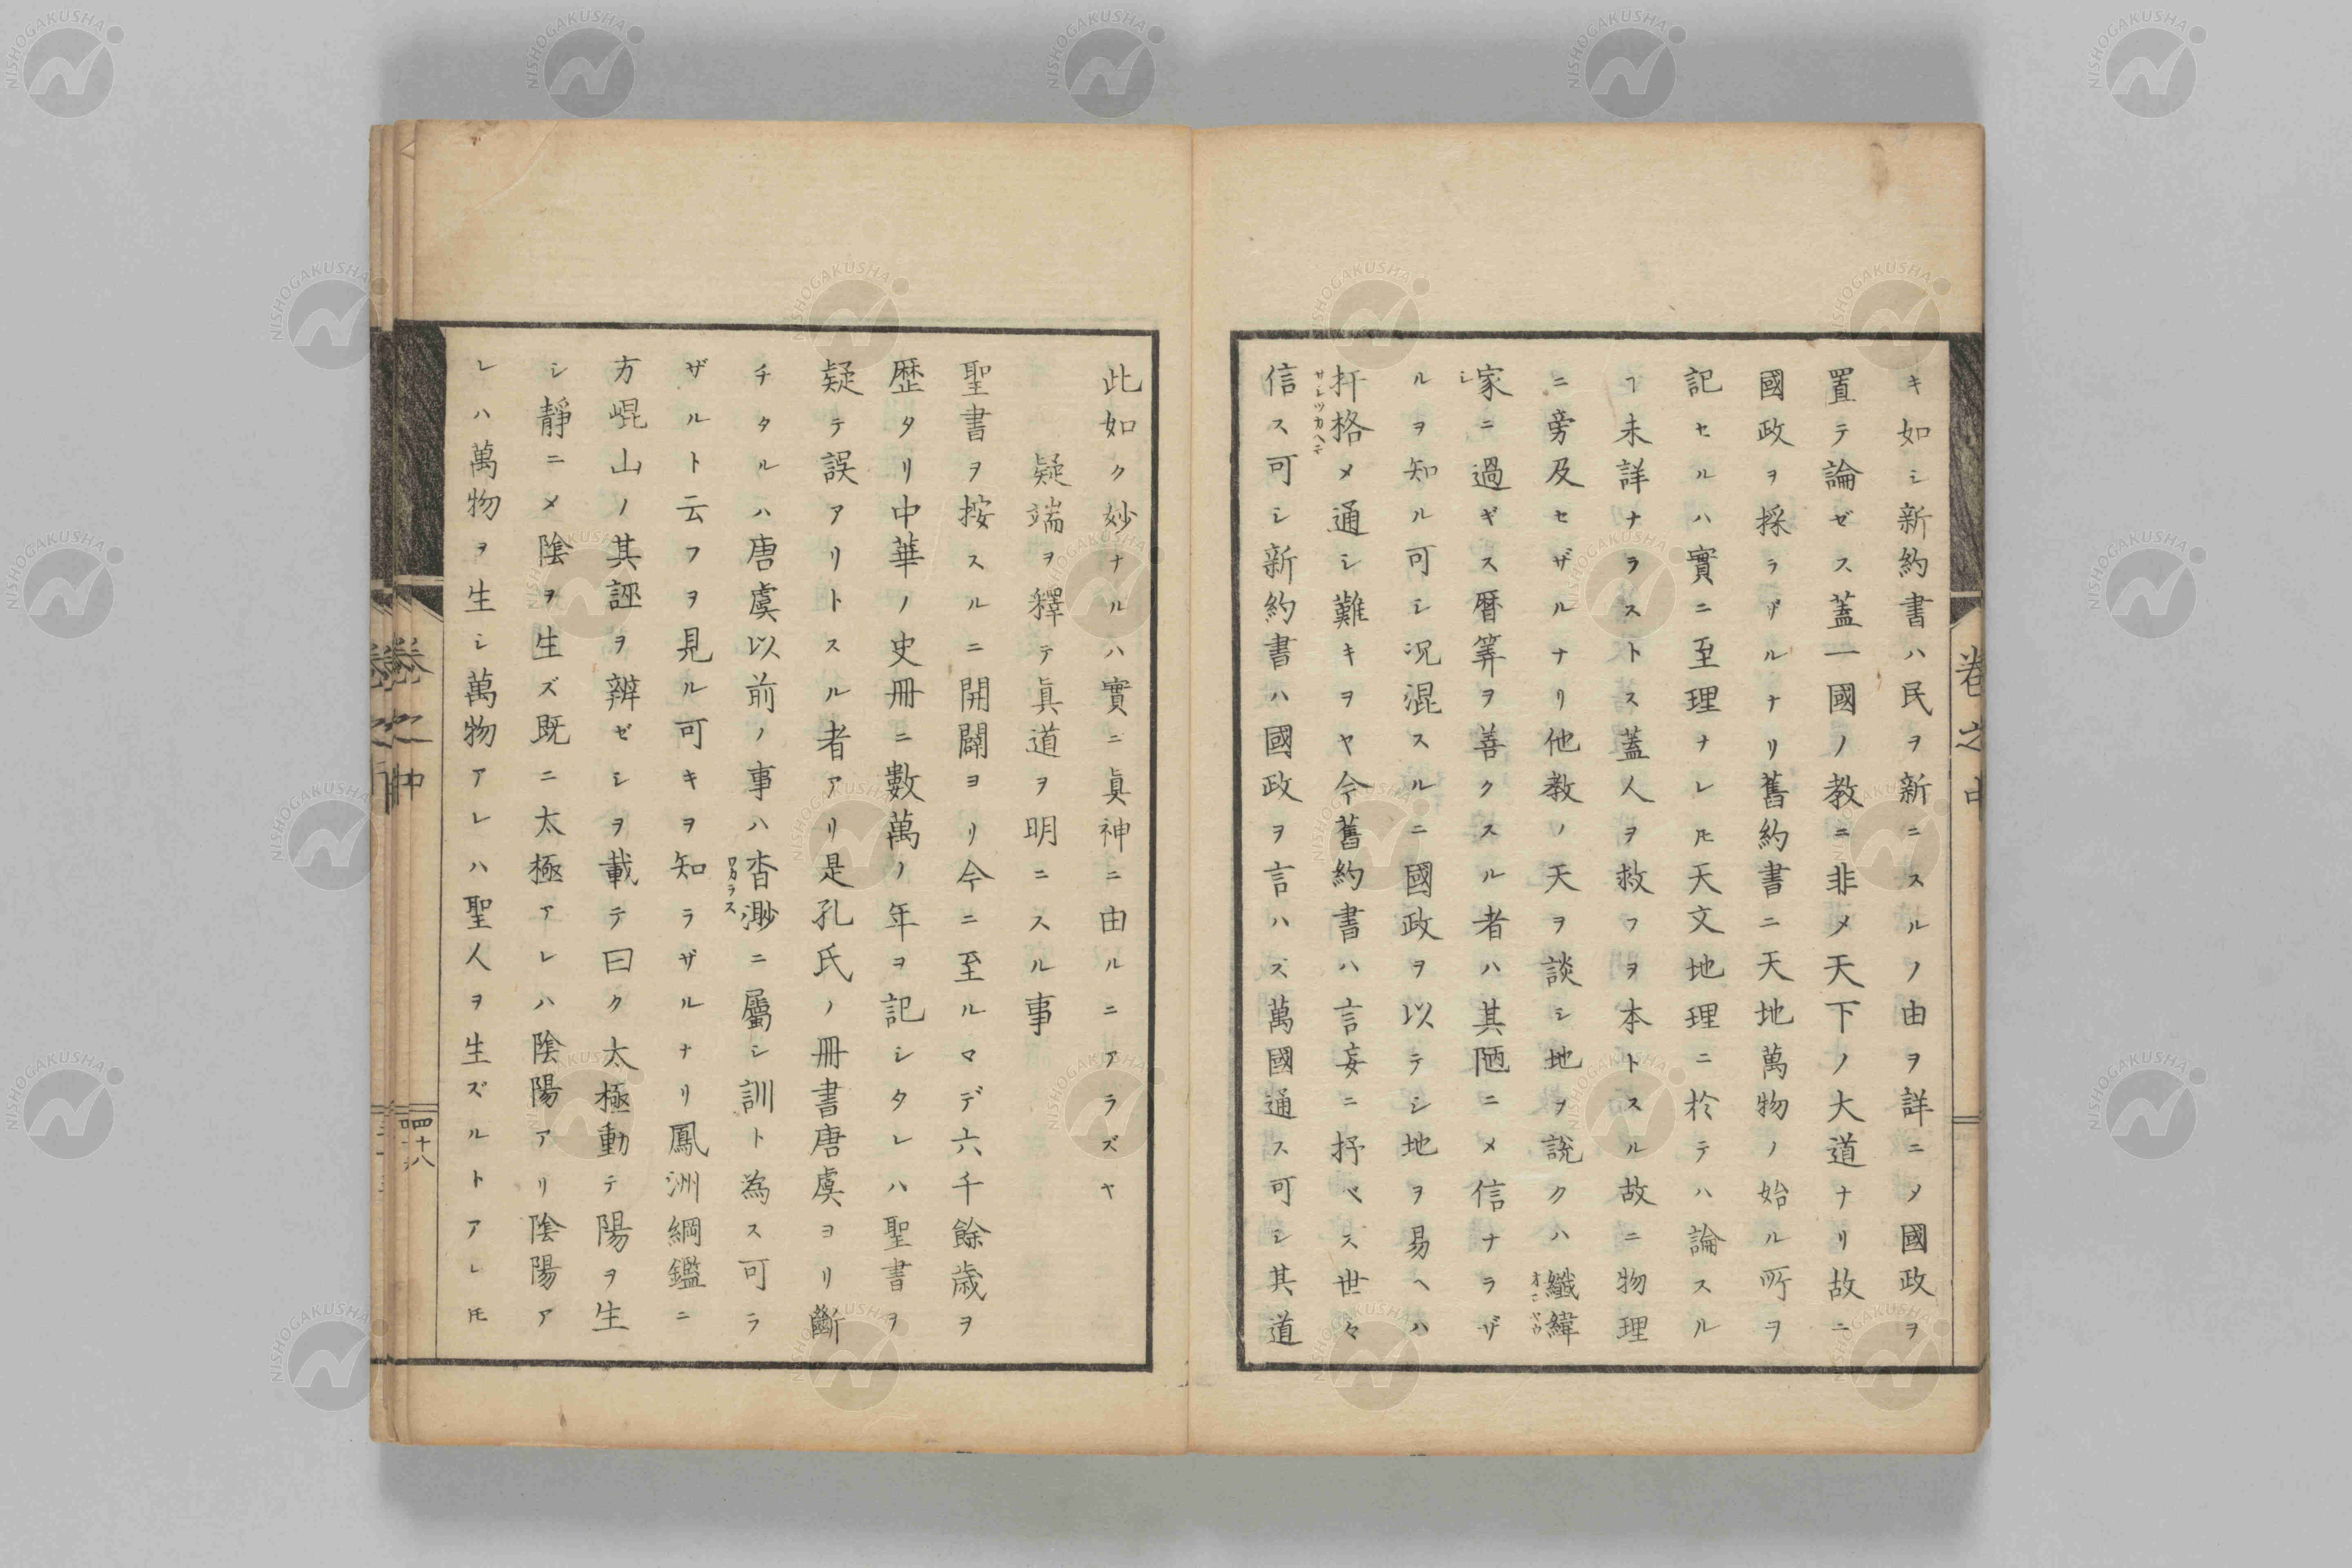 キ如シ新約書ハ民ヲ新ニスルノ由ヲ詳ニメ國政ヲ
置テ論ゼス蓋一國ノ教ニ非メ天下ノ大道ナリ故ニ
國政ヲ採ラザルナリ舊約書ニ天地萬物ノ始ル所ヲ
記セルハ實ニ至理ナレ𪜈天文地理ニ於テハ論スル
ヿ未詳ナラストス蓋人ヲ救フヲ本トスル故ニ物理
ニ旁及セザルナリ他教ノ天ヲ談シ地ヲ說クハ纖緯
オニベウ
家ニ過ギス暦筭ヲ善クスル者ハ其陋ニメ信ナラザ
シ
ルヲ知ル可シ况混スルニ國政ヲ以テシ地ヲ易ヘハ
扞格メ通シ難キヲヤ今舊約書ハ言妄ニ抒ベス世々
サシツカヘテ
信ス可シ新約書ハ國政ヲ言ハズ萬國通ス可シ其道
卷之中
此如ク妙ナルハ實ニ眞神ニ由ルニアラズヤ
疑端ヲ釋テ眞道ヲ明ニスル事
聖書ヲ按スルニ開闢ヨリ今ニ至ルマデ六千餘歳ヲ
歴タリ中華ノ史冊ニ數萬ノ年ヲ記シタレハ聖書ヲ
疑テ誤アリトスル者アリ是孔氏ノ冊書唐虞ヨリ斷
チタルハ唐虞以前ノ事ハ杳渺ニ屬シ訓ト為ス可ラ
ワカラス
ザルト云フヲ見ル可キヲ知ラザルナリ鳳洲綱鑑ニ
方崐山ノ其誣ヲ辨ゼシヲ載テ曰ク太極動テ陽ヲ生
シ靜ニメ陰ヲ生ズ既ニ太極アレハ陰陽アリ陰陽ア
レハ萬物ヲ生シ萬物アレハ聖人ヲ生ズルトアレ𪜈
卷之中
四十八